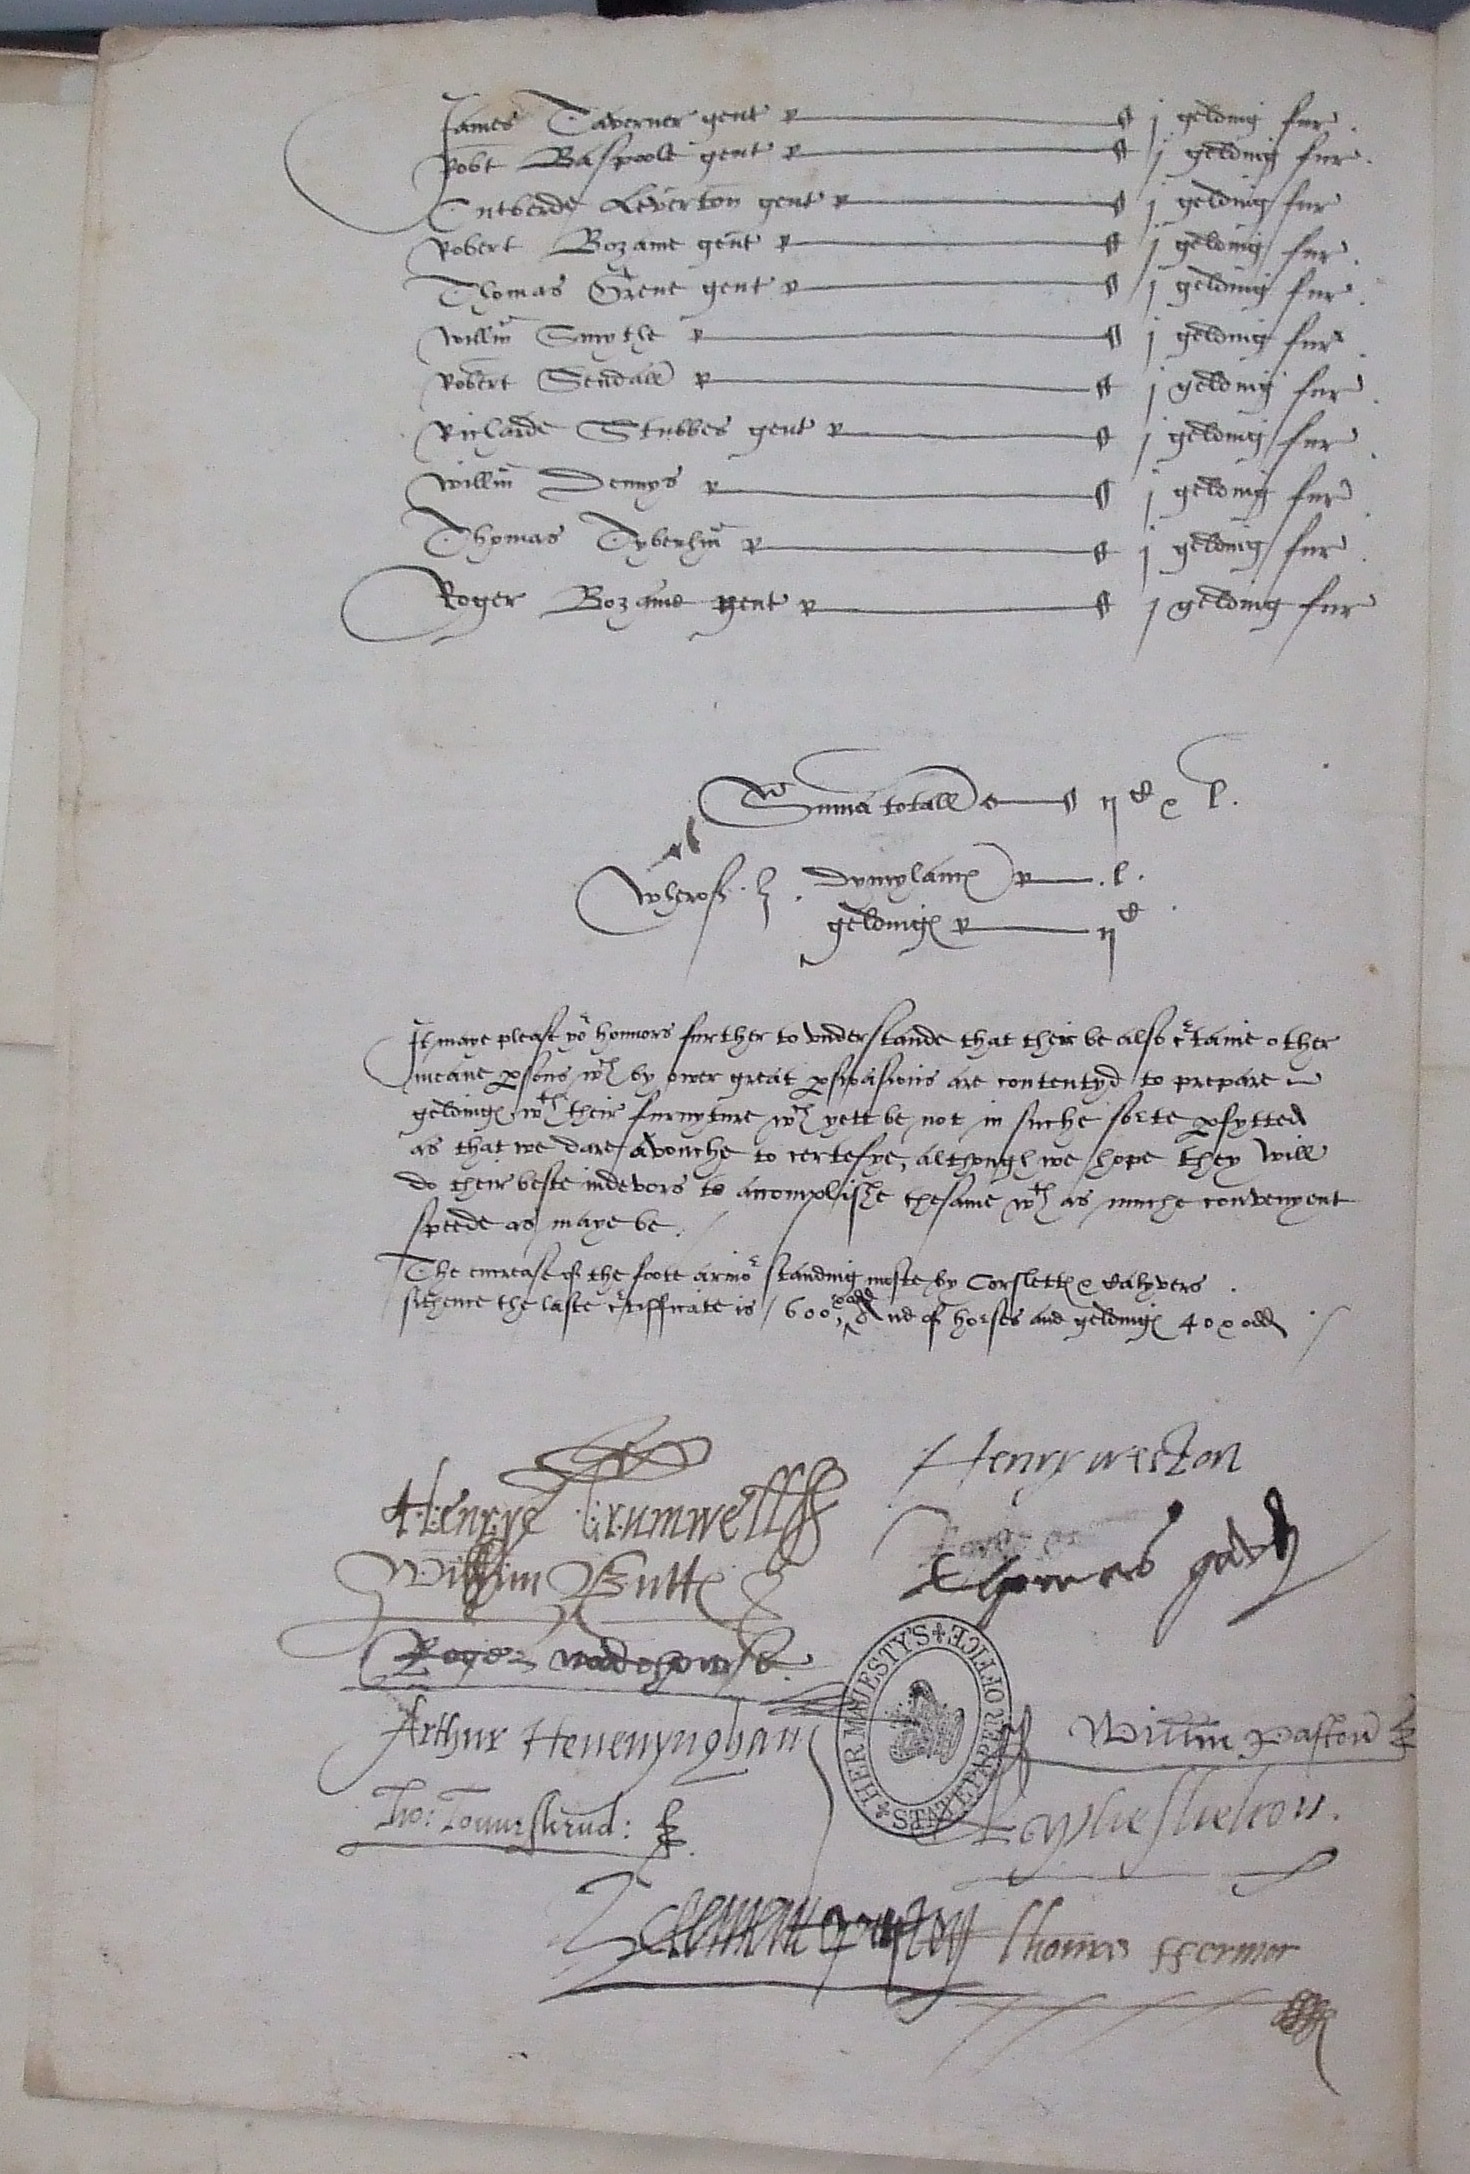 James Taverner gent j gelding fur
Robt Baspoole gent j gelding fur
Cutberde Leverton gent j gelding fur
Robert Bozame gent j gelding fur
Thomas Grene gent j gelding fur
Willm Smythe j gelding fur
Robert Sendall j gelding fur
Richarde Stubbes gent j gelding fur
Willm Dennys j gelding fur
Thomas j gelding fur
Roger Bozame gent j gelding fur
Suma totall ij c l.
Wherof. dymylanc l.
gelding ij c
It maye please yor honnors further to understande that their be also certaine other
meane psons wch by ower great pswasions are contentyd to prepare
gelding wth their furnyture wch yett be not in suche sorte pfytted
as that we dare avouche to certefye, although we hope they will
do their beste indevors to accomplishe thesame wth as muche convenyent
speede as maye be.
The encrease of the foote armor standing moste by Corslett & Calyvers
sithence the laste certifficate is 600 & odd And of horses and gelding 40 & odd
Henry Weston
Henrye Crumwell
Thomas gawdy
Willim Butt
Roger wodehowse
HER MAJESTY'S STATE PAPER OFFICE
Arthur Heuenyngham
Willm Paston
Tho: Townshend:
Raphe Shelton.
Clement Paston
Thomas ffermor